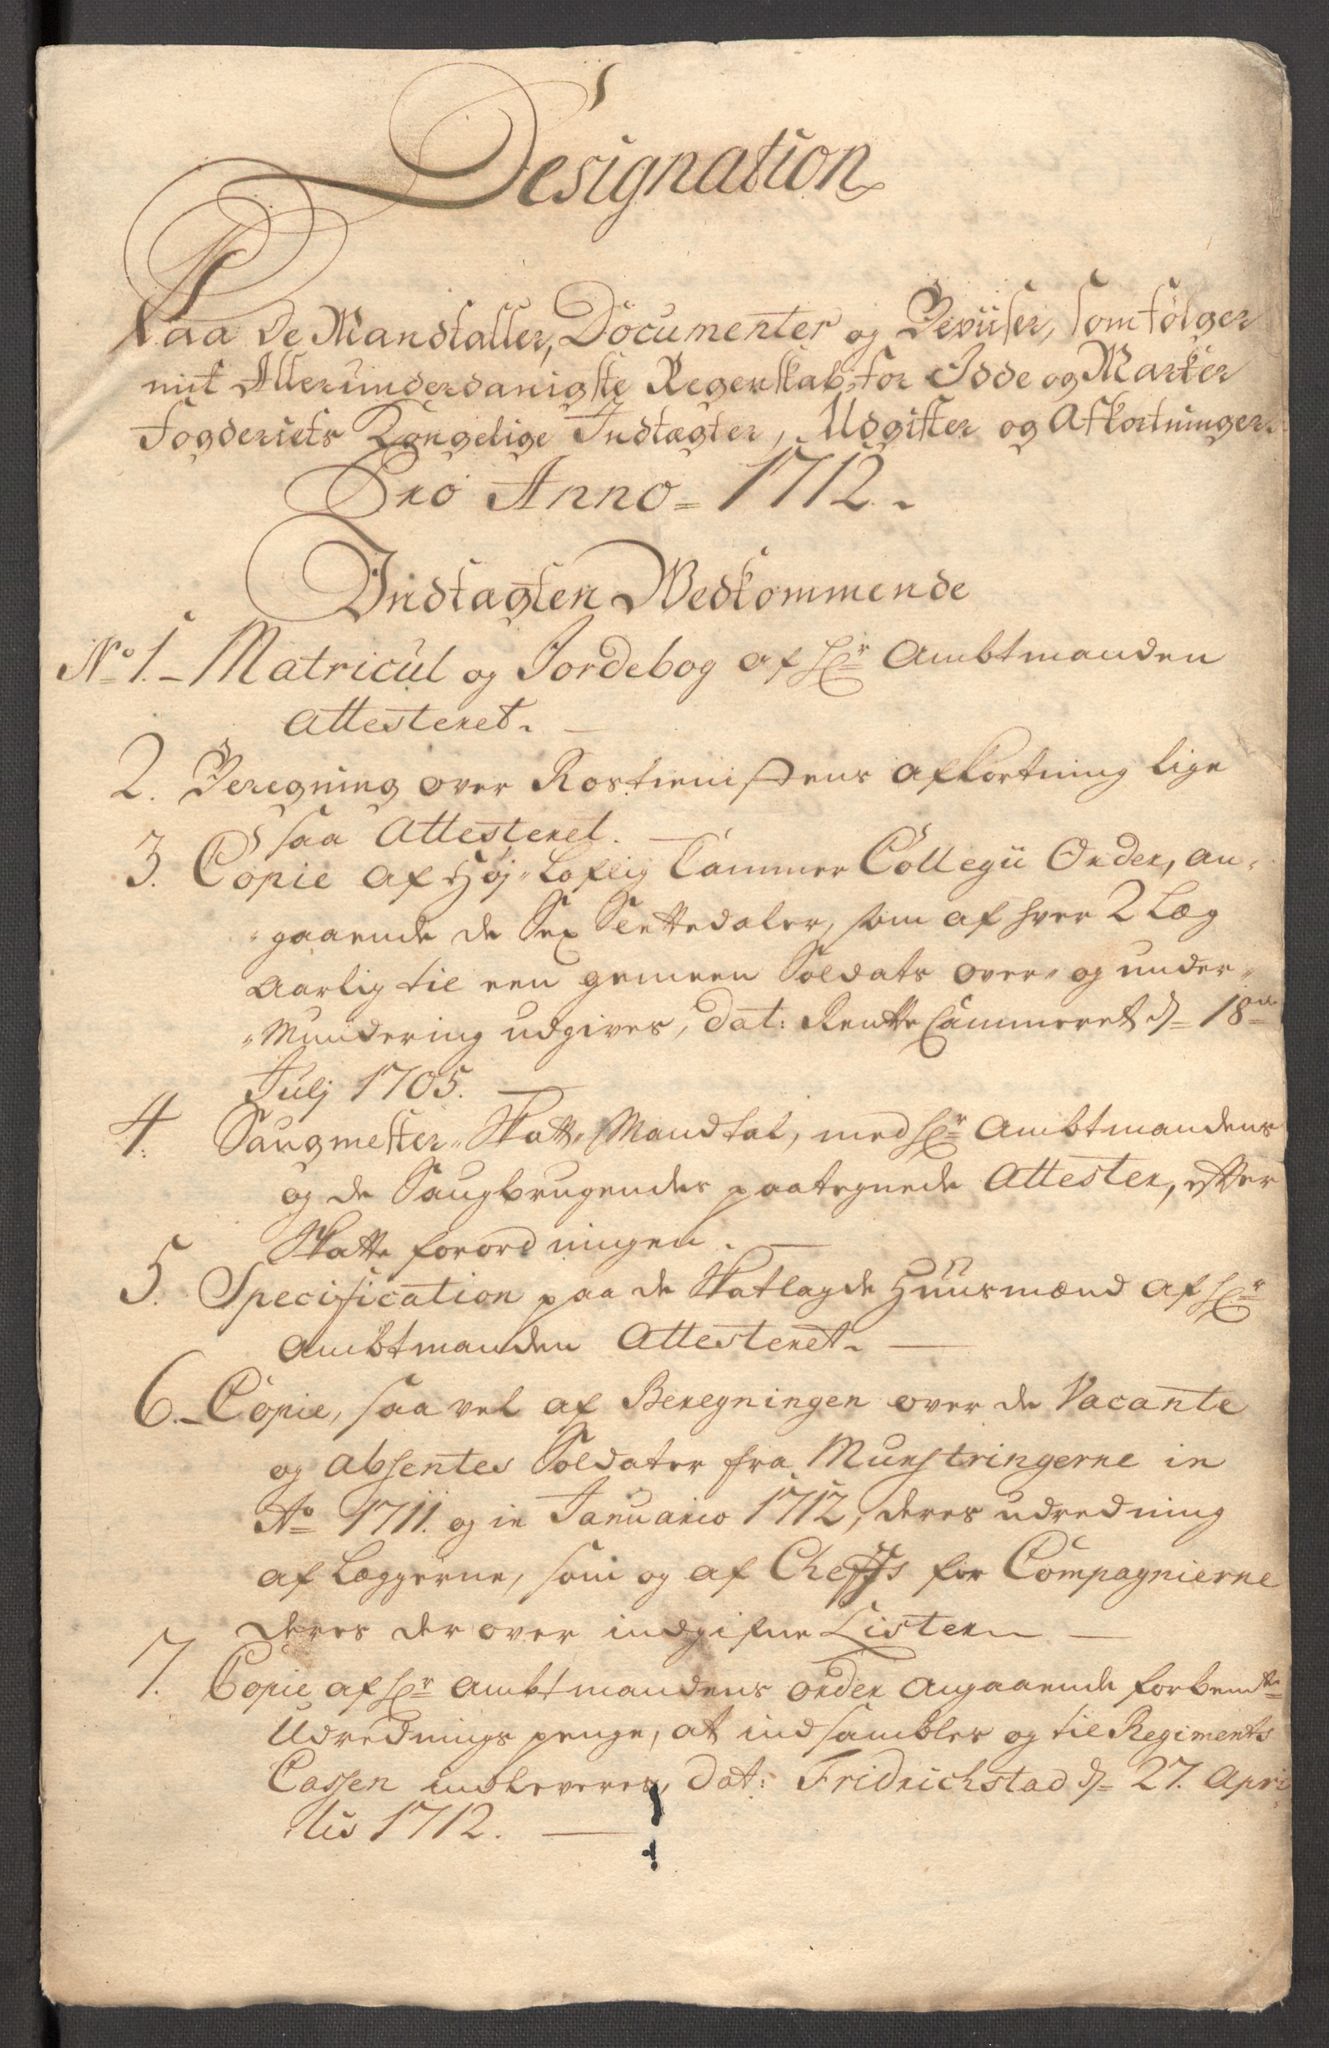 Designation
Paa de Mandtaller, Documenter og Beviiser, som følger
mit Allerunderdanigste Regenskab, for Idde og Marker
Fogderiets Kongelige Indtægter, Udgifter og Afkortninger.
Pro Anno = 1712.
Indtægten Wedkommende
No 1. Matricul og Jordebog af Hr Ambtmanden
Attesteret.
2. Beregning over Rostieni[st]ens afkortning lige
saa Attesteret.
3. Copie af Høj-Loflig Cammer Collegii Order, an-
gaaende de Sex Slettedaler, som af hver 2 Læg
Aarlig til een gemeen Soldats over- og under-
Mundering udgives, dat: Rente Cammeret d. 18de
Julj 1705.
4. Saugmester-Skatt-Mandtal, med Hr Ambtmandens
og de Saugbrugendes paategnede Attester, efter
Skatte forordningen.
5. Specification paa de Skatlagde Huusmænd af Hr
Ambtmanden Attesteret.
6. Copie, saa vel af Beregningen over de Vacante
og absentes Soldater fra Munstringerne in
Ao 1711. og in Januario 1712, deres udredning
af Læggerne, som og af Cheffs for Compagnierne
deres der over indgifne Lister
7. Copie af Hr Ambtmandens Order angaaende forbemte
Udrednings penge, at indsambles og til Regiments
Cassen indleveres, dat: Fridrichstad d. 27. Apri-
lis 1712.